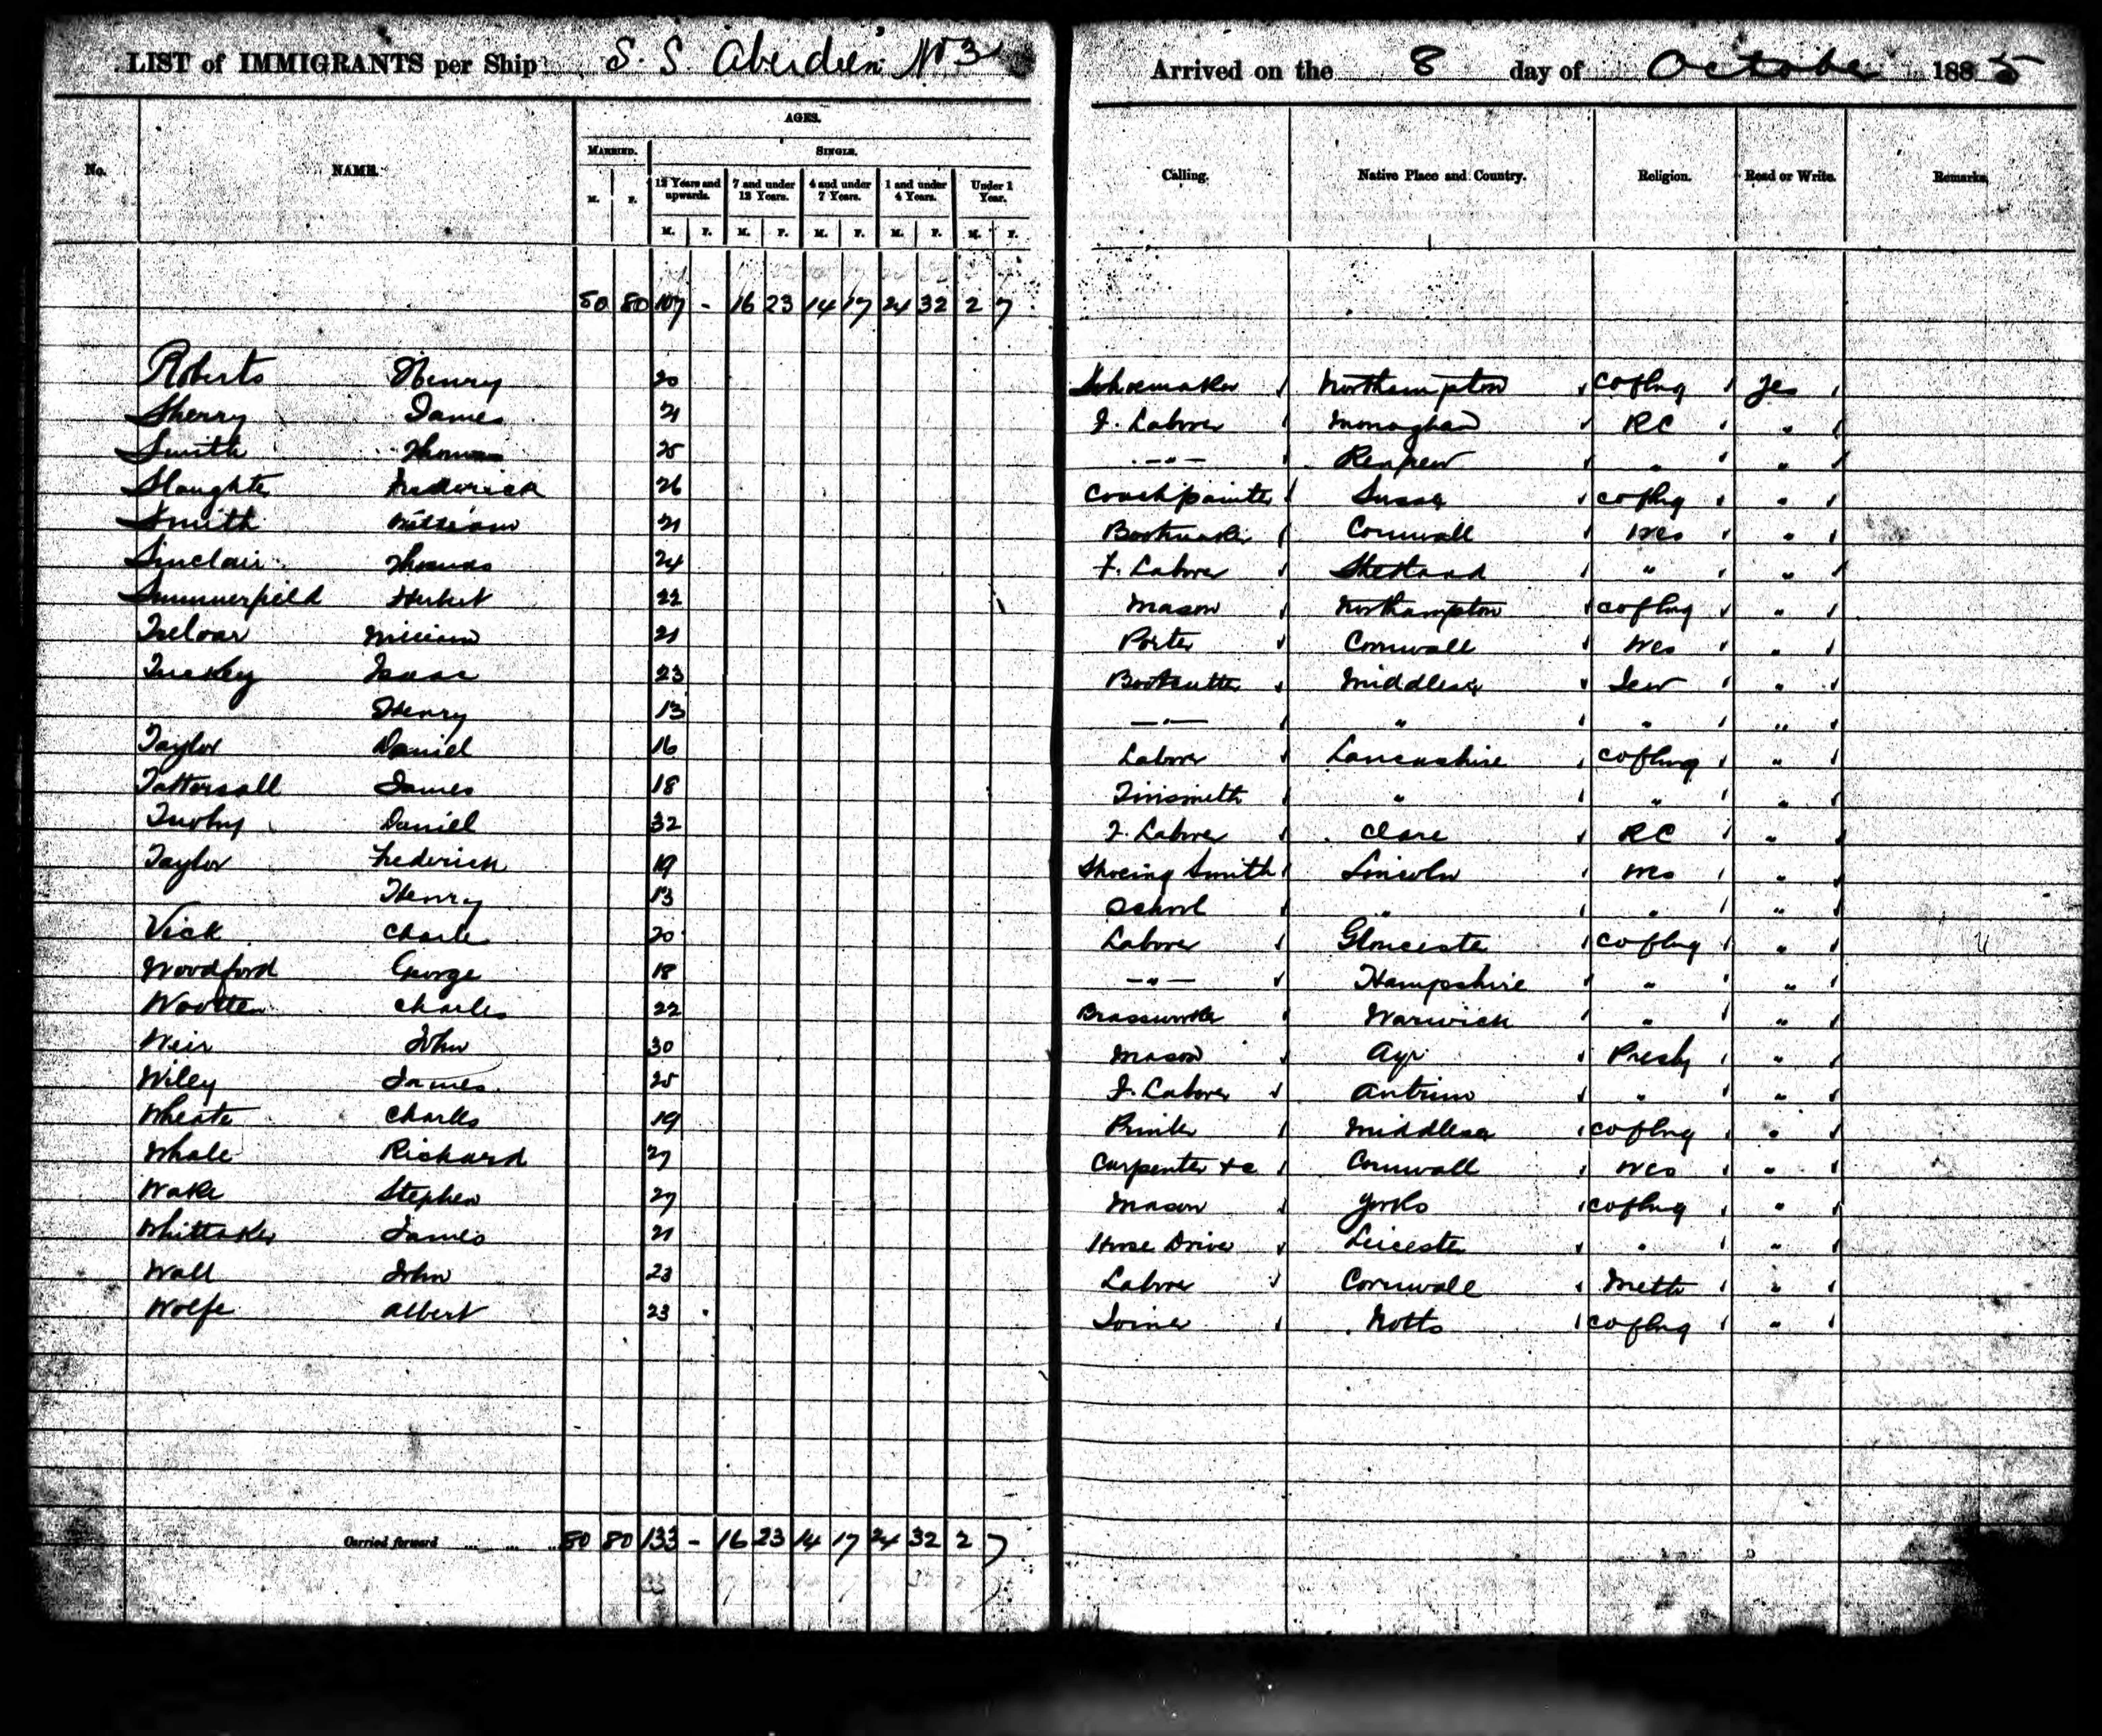 LIST of IMMIGRANTS per Ship S. S. Aberdeen No 3 Arrived on the 8 day of October 1885
AGES.
MARRIED. SINGLE.
No. NAME. Calling. Native Place and Country. Religion. Read or Write. Remarks
12 Years and upwards. 7 and under 12 Years. 4 and under 7 Years. 1 and under 4 Years. Under 1 Year.
M. F. M. F. M. F. M. F. M. F. M. F.
50 80 107 - 16 23 14 17 24 32 2 7
Roberts Henry 20 Shoemaker Northampton C of Eng Yes
Sherry James 21 F. Laborer Monaghan RC "
Smith Thomas 25 -"- Renfrew " "
Slaughter Frederick 26 Coachpainter Sussex C of Eng "
Smith William 21 Bootmaker Cornwall Wes "
Sinclair Thomas 24 F. Laborer Shetland " "
Summerfield Herbert 22 Mason Northampton C of Eng "
Treloar William 21 Porter Cornwall Wes "
Isaac 23 Bootcutter Middlesex Jew "
Henry 13 -"- " " "
Taylor Daniel 16 Laborer Lancashire C of Eng "
Tattersall James 18 Tinsmith " " "
Daniel 32 F. Laborer Clare RC "
Taylor Frederick 19 Shoeing Smith Lincoln Wes "
Henry 13 School " " "
Vick Charles 20 Laborer Gloucester C of Eng "
Woodford George 18 -"- Hampshire " "
Wootten Charles 22 Brassworker Warwick " "
Weir John 30 Mason Ayr Presby "
Wiley James 25 F. Laborer Antrim " "
Wheate Charles 19 Printer Middlesex C of Eng "
Whale Richard 27 Carpenter &c Cornwall Wes "
Wake Stephen 27 Mason Yorks C of Eng "
Whittaker James 21 Horse Driver Leicester " "
Wall John 23 Laborer Cornwall Meth "
Wolfe Albert 23 Joiner Notts C of Eng "
Carried forward ... ... ... 50 80 133 - 16 23 14 17 24 32 2 7